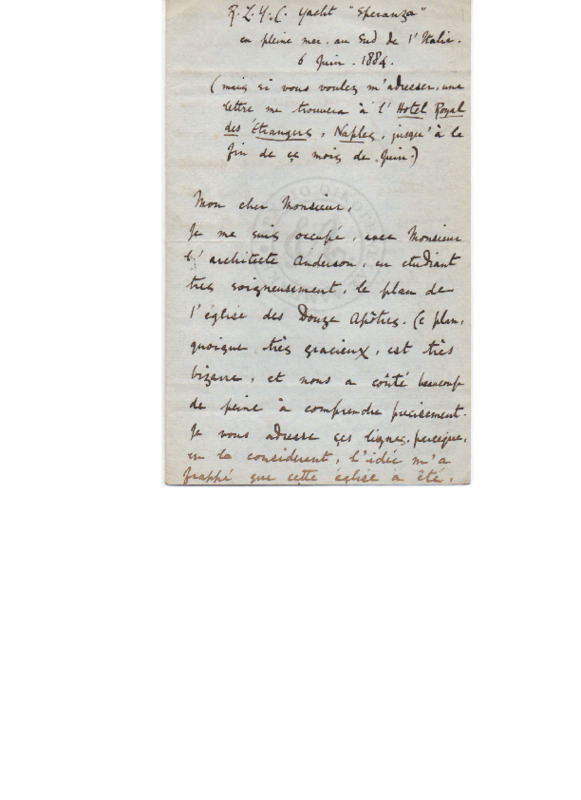 R. L. Y. C. Yacht "Speranza"
en pleine mer. au Sud de l'Italie.
6 Juin. 1884.
(mais si vous voulez m'adresser, une
lettre me trouvera à l'Hotel Royal
des Étrangers, Naples, jusqu'à la
fin de ce mois de Juin.)
Mon cher Monsieur,
Je me suis occupé, avec Monsieur
l'architecte Anderson, en etudiant
très soigneusement, le plan de
l'église des Douze Apôtres. Ce plan,
quoique très gracieux, est très
bizarre, et nous a coûté beaucoup
de peine à comprendre precisement.
Je vous adresse ces lignes, parceque,
en le considerent, l'idée m'a
frappé que cette église a été,